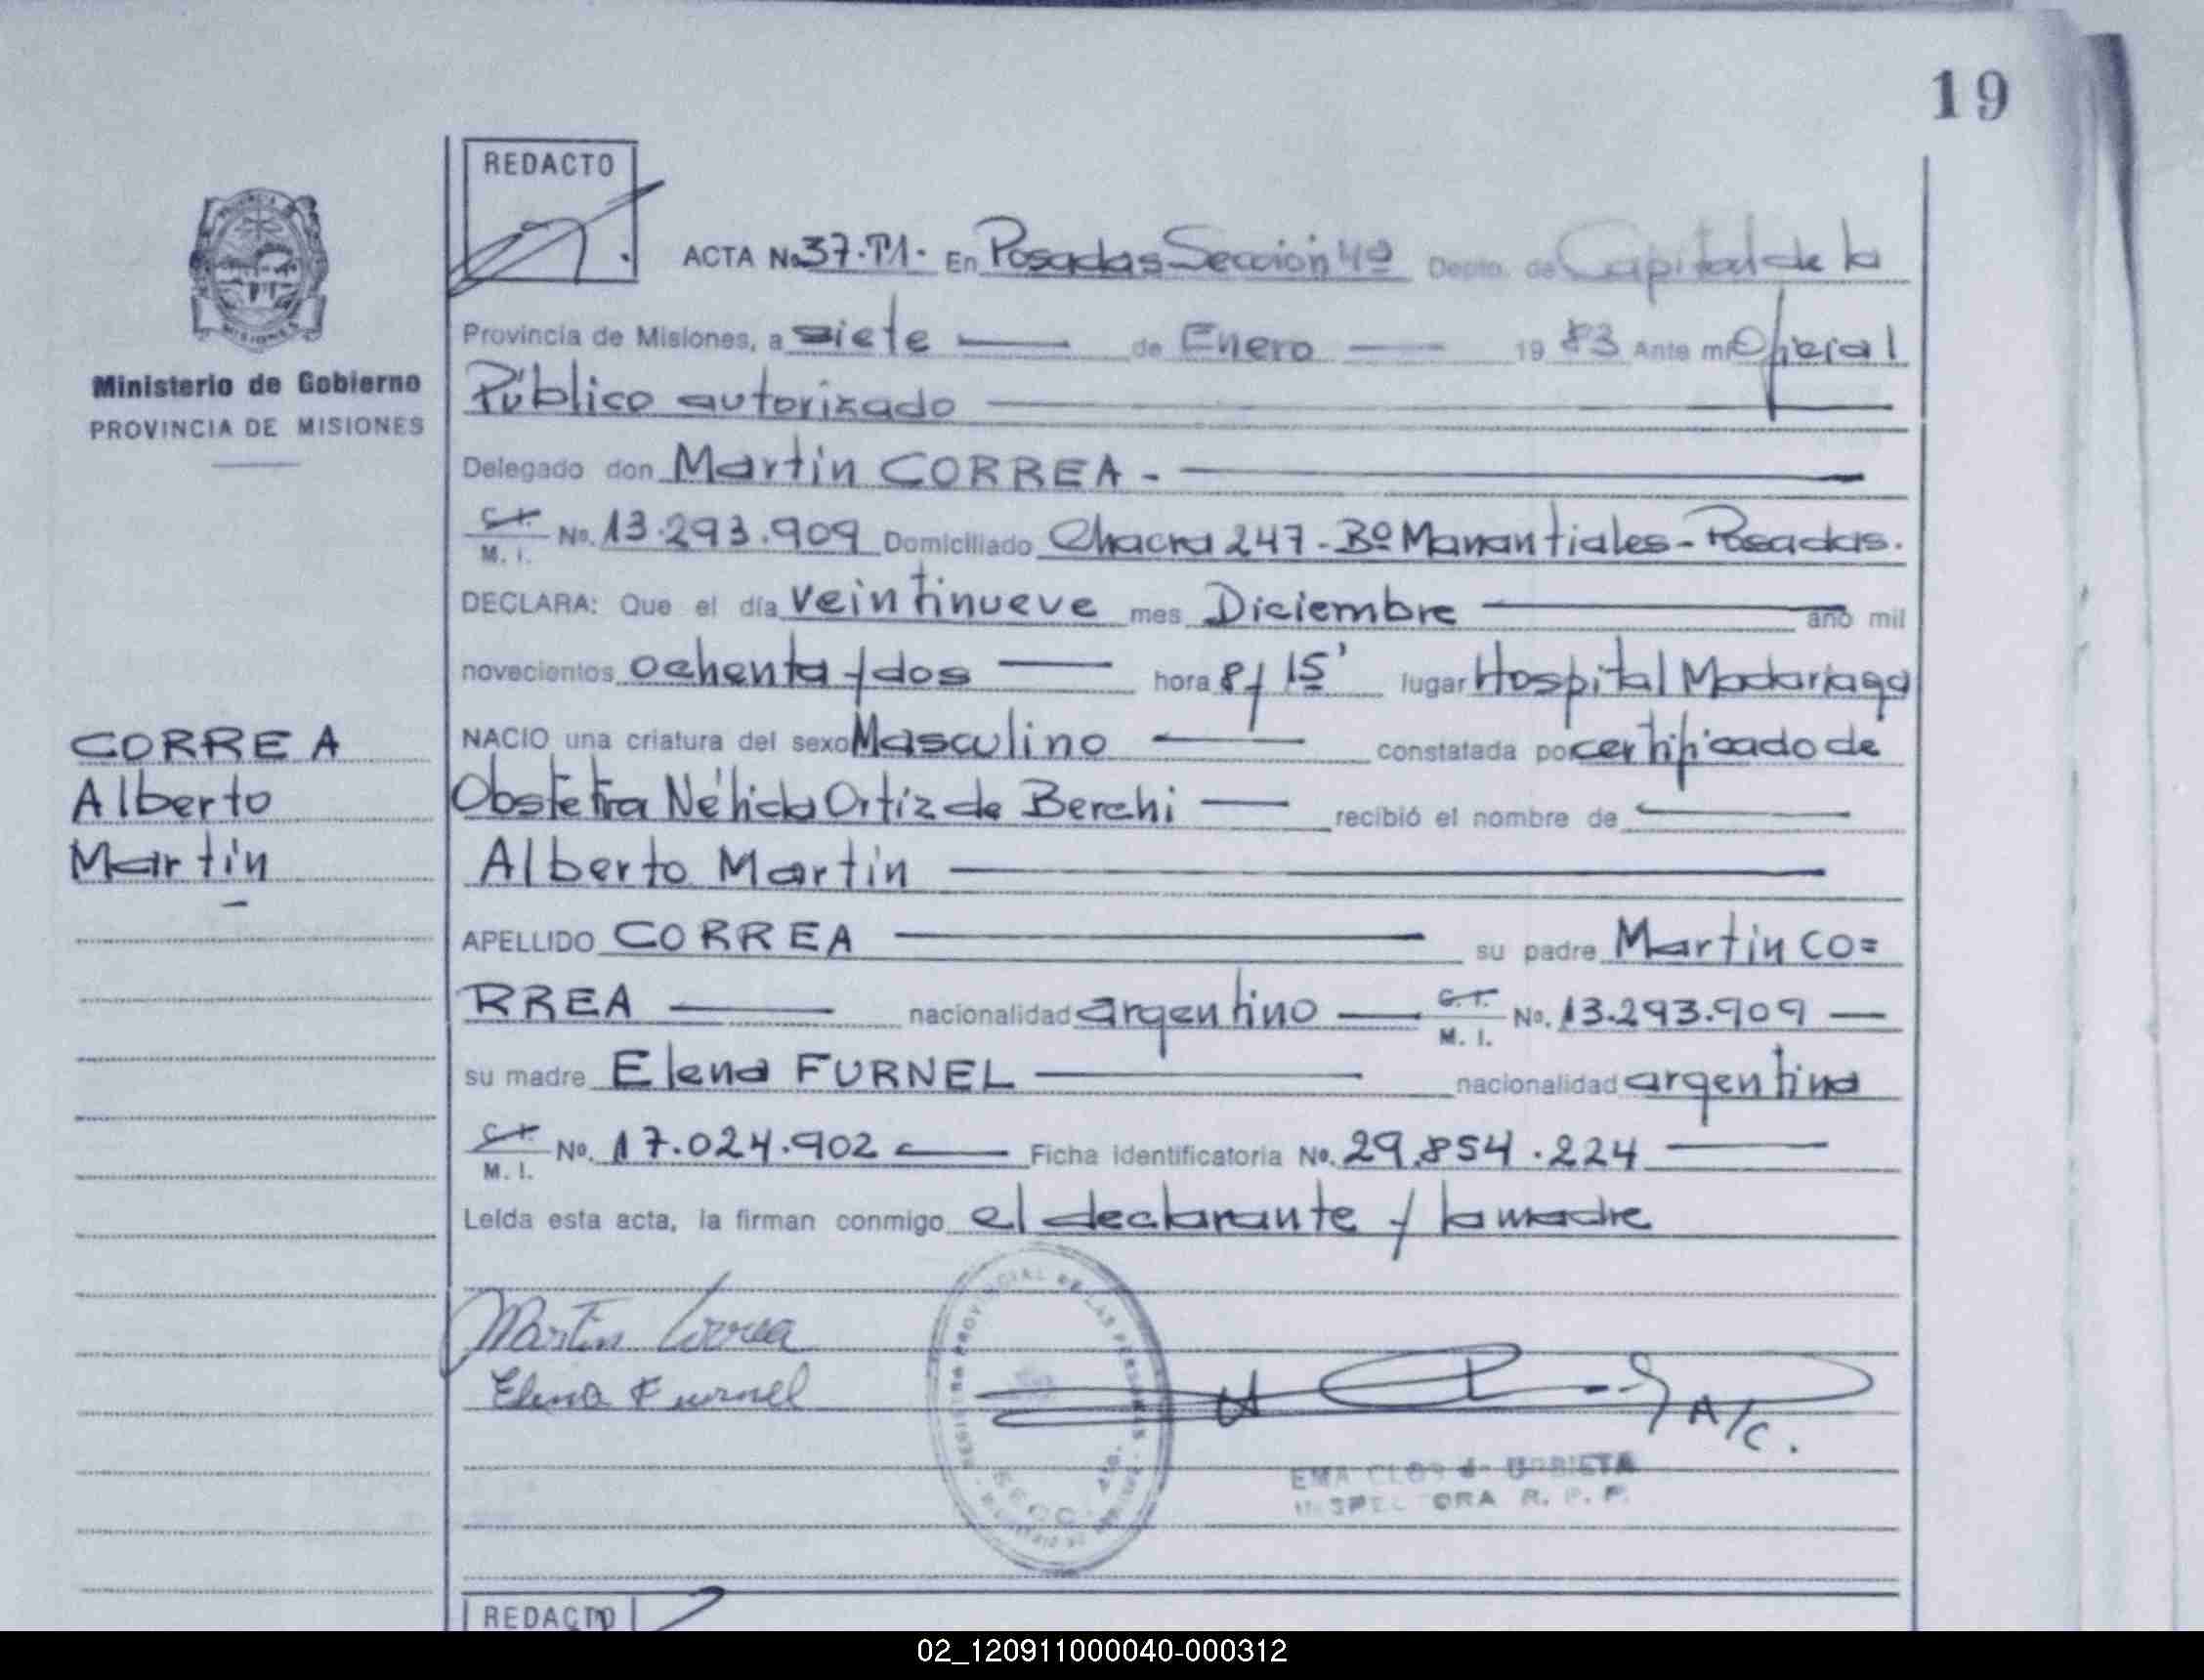 19
REDACTO
ACTA No. 37-T1- En Posadas Sección 4º Depto. de Capital de la
Provincia de Misiones, a siete de Enero 19 83 Ante mí Oficial
Público autorizado
Ministerio de Gobierno
PROVINCIA DE MISIONES
Delegado don Martín CORREA -
C.I. M. I. No. 13.293.909 Domiciliado Chacra 247 - Bº Manantiales - Posadas.
DECLARA: Que el día veintinueve mes Diciembre año mil
novecientos ochenta y dos hora 8 y 15' lugar Hospital Madariaga
NACIO una criatura del sexo Masculino constatada por certificado de
Obstetra Nélida Ortíz de Berchi recibió el nombre de
Alberto Martín
CORREA
Alberto
Martín
APELLIDO CORREA su padre Martín CO=
RREA nacionalidad argentino C.I. M. I. No. 13.293.909
su madre Elena FURNEL nacionalidad argentina
C.I. M. I. No. 17.024.902 Ficha identificatoria No. 29.854.224
Leída esta acta, la firman conmigo el declarante y la madre
Martin Correa
Elena Furnel
A/C.
REGISTRO PROVINCIAL DE LAS PERSONAS
SECC. 4ta.
EMA CLOS de URBIETA
INSPECTORA R. P. P.
REDACTO
02_120911000040-000312